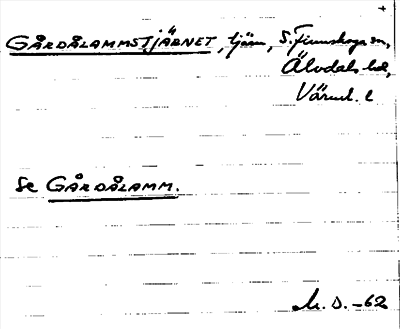 +
GÅRDÅLAMMSTJÄRNET, tjärn, S. Finnskoga sn,
Älvdals hd,
Värml. l
Se GÅRDÅLAMM.
M. D. -62